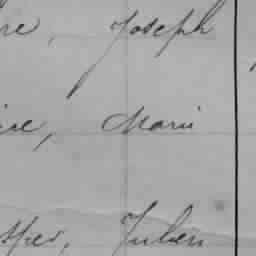 re, Joseph
ie, Marie
Julien